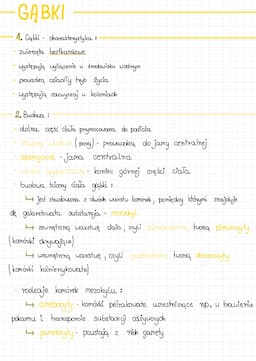 GĄBKI
1. Gąbki - charakterystyka :
- zwierzęta beztkankowe
- występują wyłącznie w środowisku wodnym
- prowadzą osiadły tryb życia
- występują zazwyczaj w koloniach
2. Budowa :
- dolna część ciała przymocowana do podłoża
- otwory (pory) - prowadzą do jamy centralnej
- spongocel - jama centralna
- otwór wyrzutowy - koniec górnej części ciała
- budowa ściany ciała gąbki :
↳ jest zbudowana z dwóch warstw komórek, pomiędzy którymi znajduje
się galaretowata substancja - mezohyl
↳ zewnętrzną warstwę ciała, czyli tworzą pinakocyty
(komórki okrywające)
↳ wewnętrzną warstwę, czyli tworzą choanocyty
(komórki kołnierzykowate)
- rodzaje komórek mezohylu :
↳ amebocyty - komórki pełzakowate uczestniczące np. w trawieniu
pokarmu i transporcie substancji odżywczych
↳ gametocyty - powstają z nich gamety